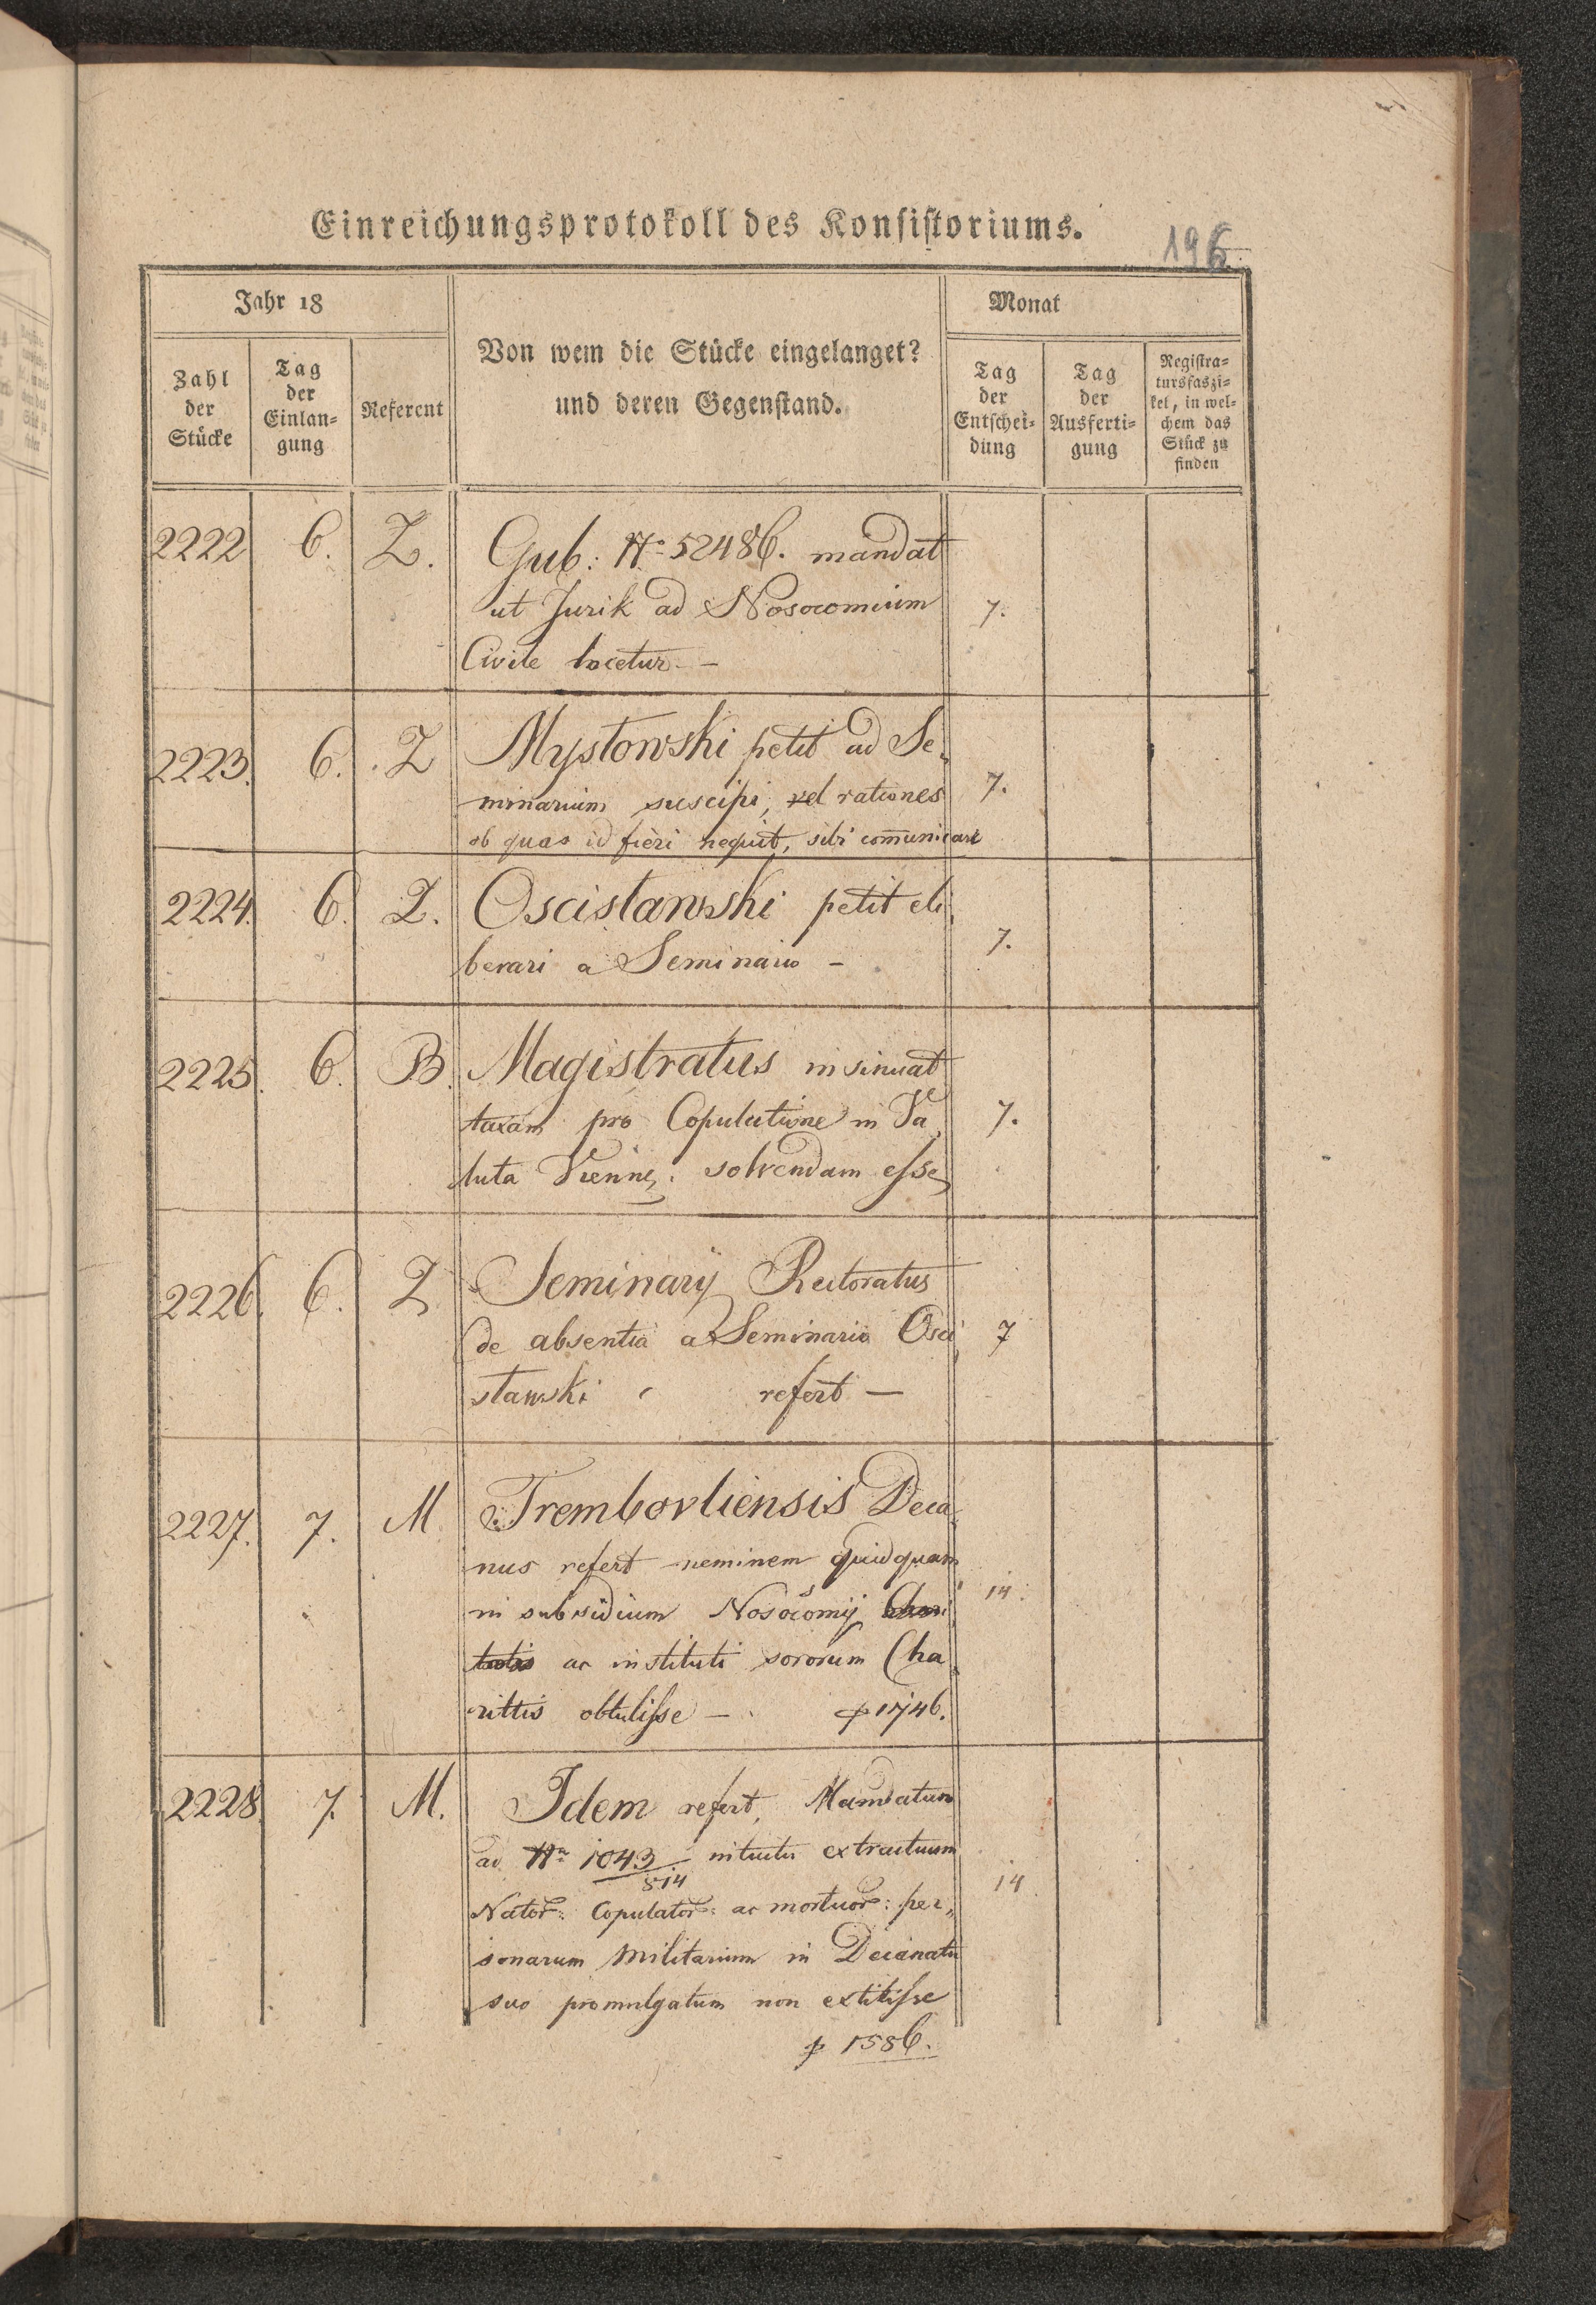 Einreichungsprotokoll des Konsistoriums.
196
Jahr 18
Monat
Zahl der Stücke
Tag der Einlan-gung
Referent
Von wem die Stücke eingelanget?
und deren Gegenstand.
Tag der Entschei-dung
Tag der Ausferti-gung
Registra-tursfaszi-kel, in wel-chem das Stück zu finden
2222 6. Z. Gub: No 52486. mandat
ut Jurik ad Nosocomium 7.
Civile locetur –
2223. 6. Z Mystowski petit ad Se,
minarium suscipi, vel rationes 7.
ob quas id fieri nequit, sibi com̄unicari
2224. 6. Z. Oscistawski petit eli,
berari a Seminario – 7.
2225. 6. B. Magistratus insinuat
taxam pro Copulatione in Va, 7.
luta Vienne, solvendam esse
2226. 6. Z Seminarij Rectoratus
de absentia a Seminario Osci, 7
stawski refert –
2227. 7. M Trembovliensis Deca,
nus refert neminem quidquam
in subsidium Nosocomij Chari, 14.
tatis ac instituti sororum Cha,
rittis obtulisse – p 1746.
2228. 7. M. Idem refert, Mandatum
ad Nr 1043/514 intuitu extractuum
Nator: Copulator: ac mortuor: per,, 14.
sonarum Militarium in Decanatu
suo promulgatum non extitisse
p 1586.